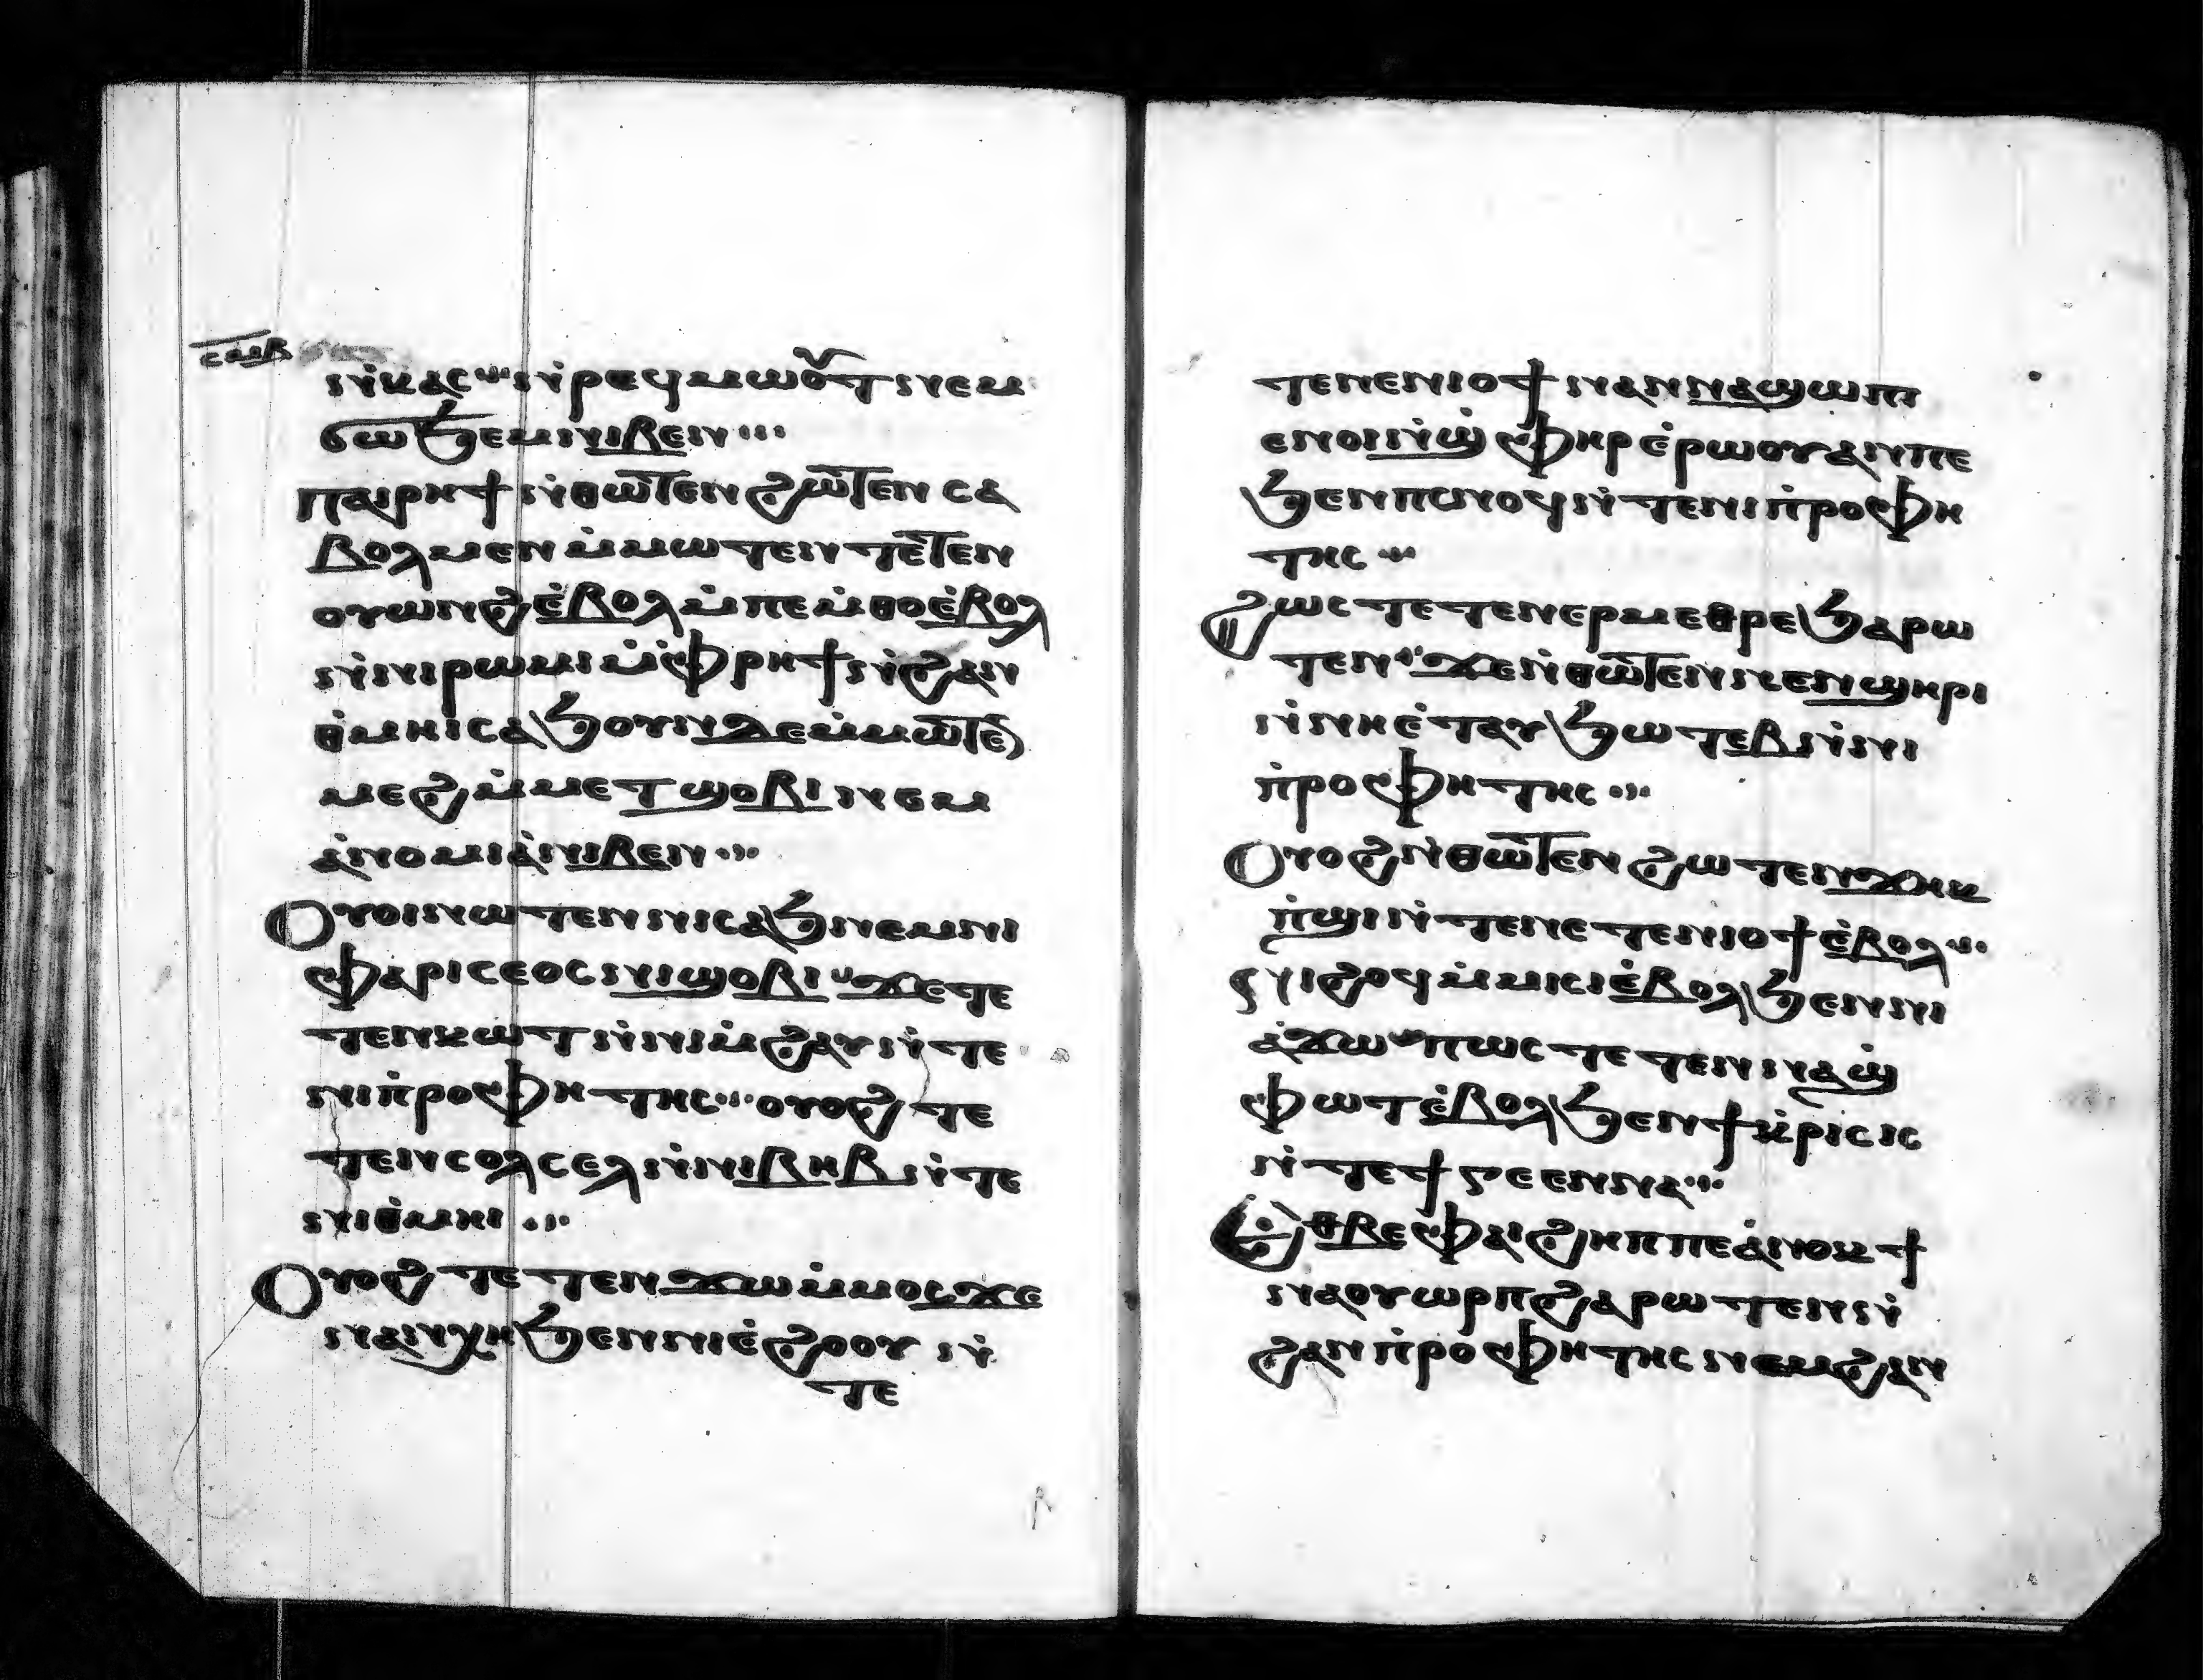 ⲥⲙⲃ
ⲛ̀ⲕⲁⲥ ⲛ̀ⲣⲉϥⲙⲱⲟⲩⲧ ⲛⲉⲙ
ϭⲱϧⲉⲙ ⲛⲓⲃⲉⲛ
ⲡⲁⲓⲣⲏϯ ⲛ̀ⲑⲱⲧⲉⲛ ϩⲱⲧⲉⲛ ⲥⲁ
ⲃⲟⲗ ⲙⲉⲛ ⲙ̀ⲙⲱⲧⲉⲛ ⲧⲉⲧⲉⲛ
ⲟⲩⲱⲛϩ ⲉ̀ⲃⲟⲗ ⲙ̀ⲡⲉⲙ̀ⲑⲟ ⲉ̀ⲃⲟⲗ
ⲛ̀ⲛⲓⲣⲱⲙⲓ ⲙ̀ⲫⲣⲏϯ ⲛ̀ϩⲁⲛ
ⲑ̀ⲙⲏⲓ ⲥⲁϧⲟⲩⲛ ⲇⲉ ⲙ̀ⲙⲱⲧⲉⲛ
ⲙⲉϩ ⲙ̀ⲙⲉⲧϣⲟⲃⲓ ⲛⲉⲙ
ⲁ̀ⲛⲟⲙⲓⲁ̀ ⲛⲓⲃⲉⲛ
ⲟⲩⲟⲓ ⲛⲱⲧⲉⲛ ⲛⲓⲥⲁϧ ⲛⲉⲙ ⲛⲓ
ⲫⲁⲣⲓⲥⲉⲟⲥ ⲛⲓϣⲟⲃⲓ ϫⲉ ⲧⲉ
ⲧⲉⲛⲕⲱⲧ ⲛ̀ⲛⲓⲙ̀ϩⲁⲩ ⲛ̀ⲧⲉ
ⲛⲓⲡ̀ⲣⲟⲫⲏⲧⲏⲥ ⲟⲩⲟϩ ⲧⲉ
ⲧⲉⲛⲥⲟⲗⲥⲉⲗ ⲛ̀ⲛⲓⲃⲏⲃ ⲛ̀ⲧⲉ
ⲛⲓⲑ̀ⲙⲏⲓ
ⲟⲩⲟϩ ⲧⲉⲧⲉⲛϫⲱ ⲙ̀ⲙⲟⲥ ϫⲉ
ⲛⲁⲛⲭⲏ ϧⲉⲛ ⲛⲓⲉ̀ϩⲟⲟⲩ ⲛ̀
ⲧⲉ
ⲧⲉⲛⲉⲛⲓⲟϯ ⲛⲁⲛⲛⲁϣⲱⲡ
ⲉⲛⲟⲓ ⲛ̀ϣ̀ⲫⲏⲣ ⲉ̀ⲣⲱⲟⲩ ⲁⲛ ⲡⲉ
ϧⲉⲛ ⲡⲥⲛⲟϥ ⲛ̀ⲧⲉ ⲛⲓⲡ̀ⲣⲟⲫⲏ
ⲧⲏⲥ
ϩⲱⲥⲧⲉ ⲧⲉⲛⲉⲣⲙⲉⲑⲣⲉ ϧⲁⲣⲱ
ⲧⲉⲛ ϫⲉ ⲛ̀ⲑⲱⲧⲉⲛ ⲛⲉⲛϣⲏⲣⲓ
ⲛ̀ⲛⲏ ⲉ̀ⲧⲁⲩϧⲱⲧⲉⲃ ⲛ̀ⲛⲓ
ⲡ̀ⲣⲟⲫⲏⲧⲏⲥ
ⲟⲩⲟϩ ⲛ̀ⲑⲱⲧⲉⲛ ϩⲱⲧⲉⲛ ϫⲏⲕ
ⲡ̀ϣⲓ ⲛ̀ⲧⲉ ⲛⲉⲧⲉⲛⲓⲟϯ ⲉ̀ⲃⲟⲗ
ⲛⲓϩⲟϥ ⲙ̀ⲙⲓⲥⲓ ⲉ̀ⲃⲟⲗ ϧⲉⲛ ⲛⲓ
ⲁ̀ϫⲱ ⲡⲱⲥ ⲧⲉⲧⲉⲛⲛⲁϣ̀
ⲫⲱⲧ ⲉ̀ⲃⲟⲗ ϧⲉⲛ ϯⲕ̀ⲣⲓⲥⲓⲥ
ⲛ̀ⲧⲉ ϯⲅⲉⲉⲛⲛⲁ
ⲉ̀ⲑⲃⲉ ⲫⲁⲓ ϩⲏⲡⲡⲉ ⲁ̀ⲛⲟⲕ ϯ
ⲛⲁⲟⲩⲱⲣⲡ ϩⲁⲣⲱⲧⲉⲛ ⲛ̀
ϩⲁⲛⲡ̀ⲣⲟⲫⲏⲧⲏⲥ ⲛⲉⲙ ϩⲁⲛ